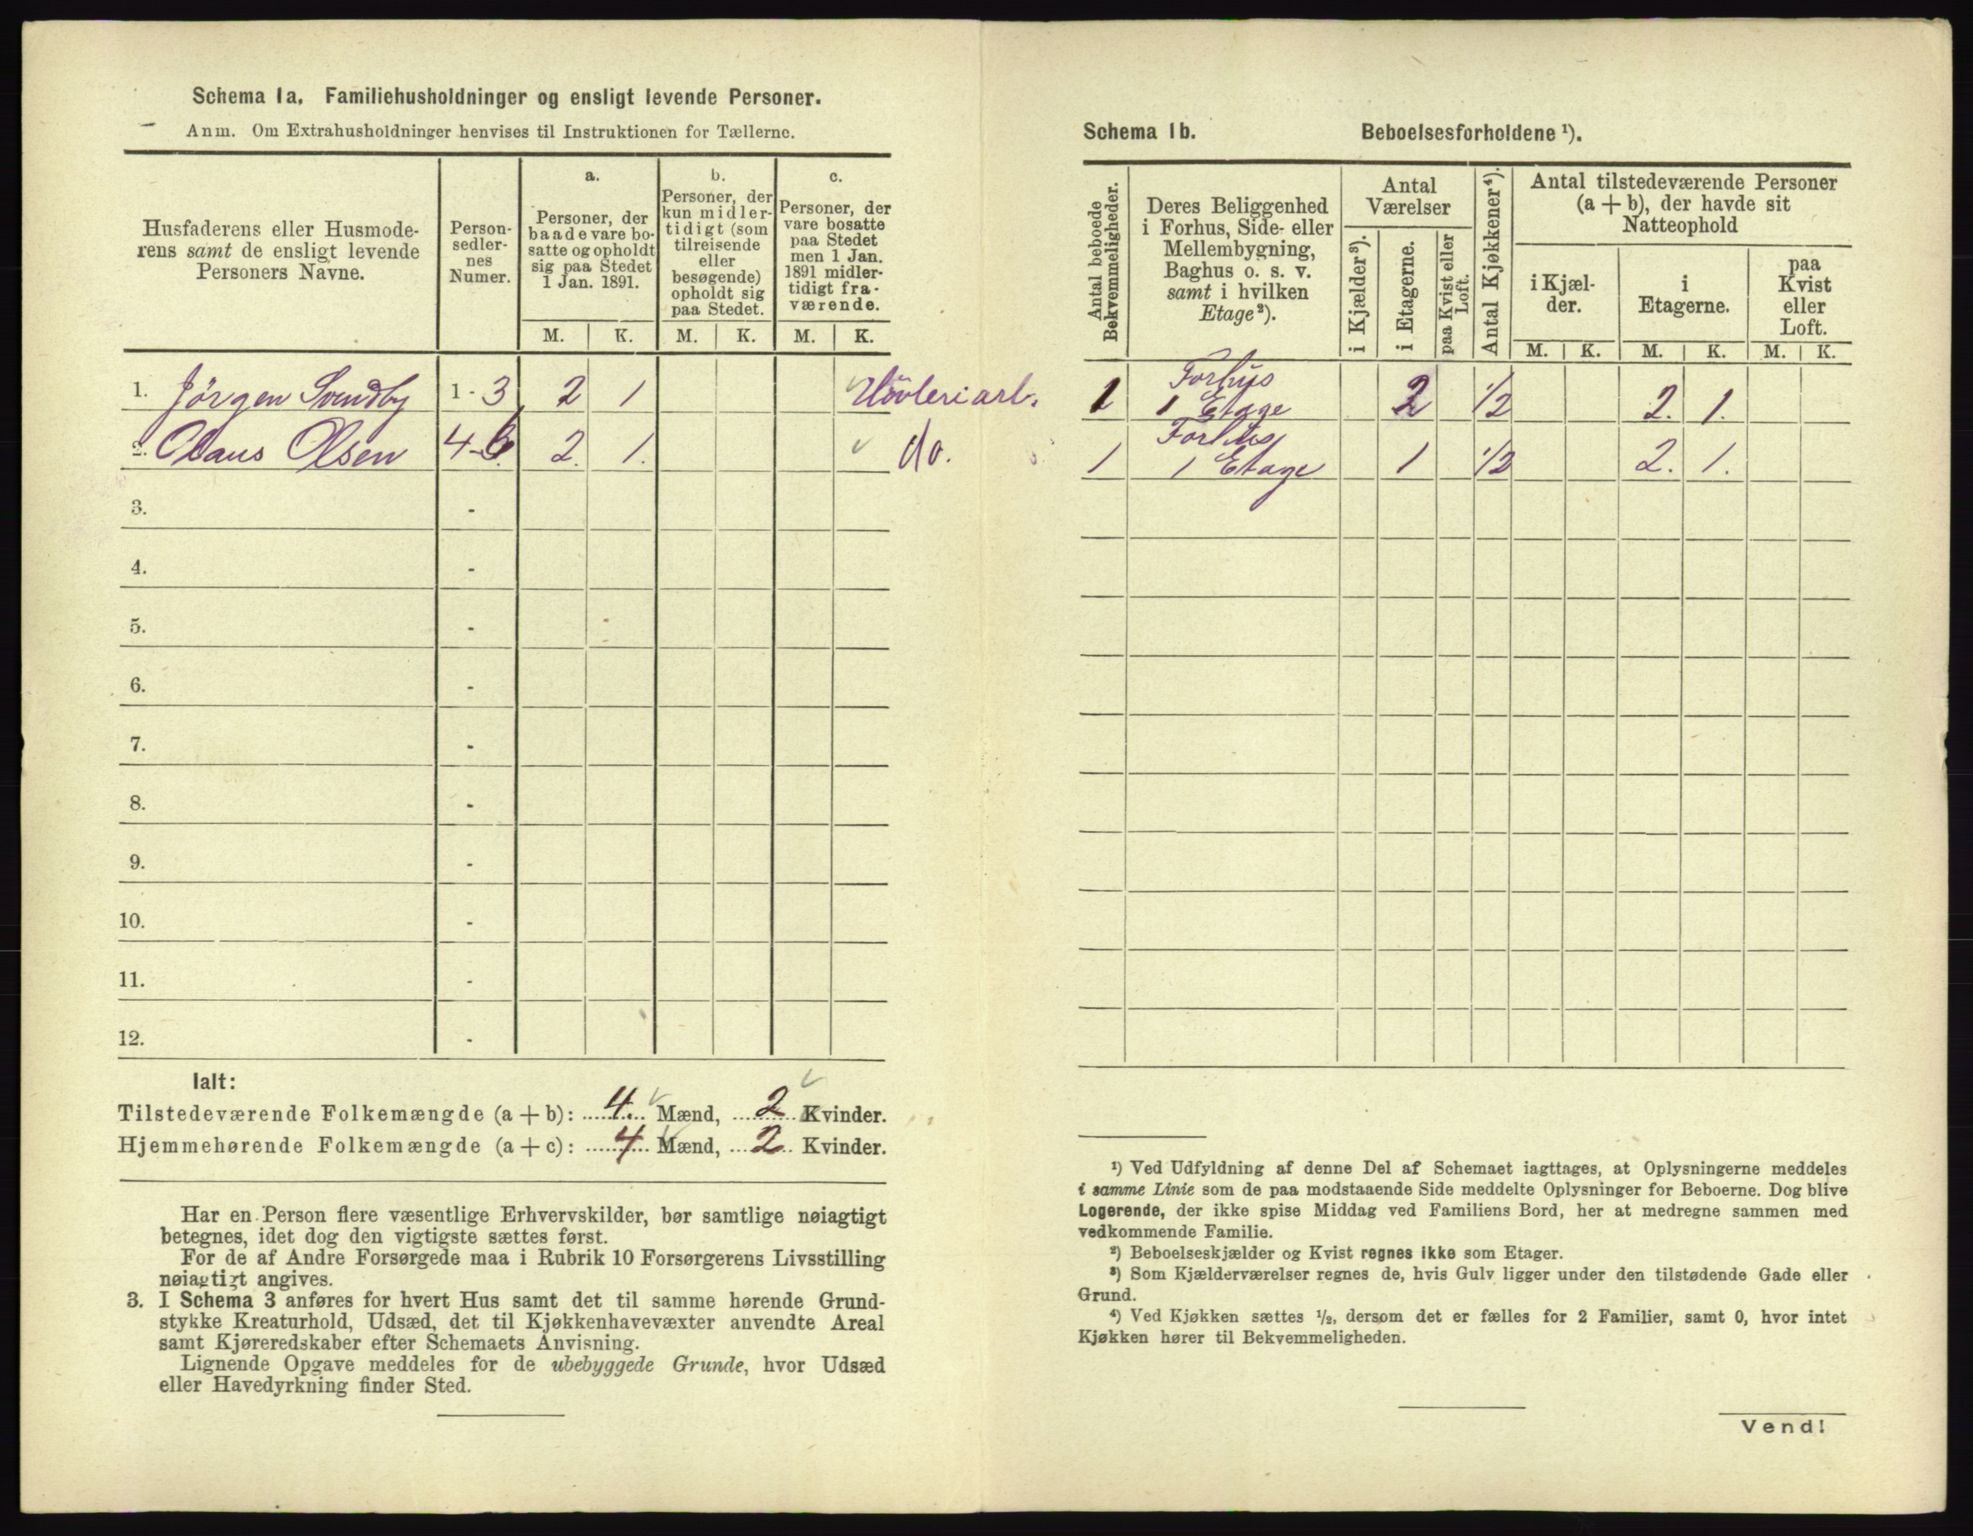 Schema 1a. Familiehusholdninger og ensligt levende Personer.
Anm. Om Extrahusholdninger henvises til Instruktionen for Tællerne.
Husfaderens eller Husmode-
rens samt de ensligt levende
Personers Navne.
Person-
sedler-
nes
Numer.
a.
Personer, der
baade vare bo-
satte og opholdt
sig paa Stedet
1 Jan. 1891.
b.
Personer, der
kun midler-
tidigt (som
tilreisende
eller
besøgende)
opholdt sig
paa Stedet.
c.
Personer, der
vare bosatte
paa Stedet
men 1 Jan.
1891 midler-
tidigt fra-
værende.
M. K. M. K. M. K.
1. Jörgen Svendby 1 - 3 2 1 Hövleriarb.
2. Claus Olsen 4-6. 2. 1. do.
3. -
4. -
5. -
6. -
7. -
8. -
9. -
10. -
11. -
12. -
Ialt:
Tilstedeværende Folkemængde (a + b): 4. Mænd, 2 Kvinder.
Hjemmehørende Folkemængde (a + c): 4 Mænd, 2 Kvinder.
Har en Person flere væsentlige Erhvervskilder, bør samtlige nøiagtigt
betegnes, idet dog den vigtigste sættes først.
For de af Andre Forsørgede maa i Rubrik 10 Forsørgerens Livsstilling
nøiagtigt angives.
3. I Schema 3 anføres for hvert Hus samt det til samme hørende Grund-
stykke Kreaturhold, Udsæd, det til Kjøkkenhavevæxter anvendte Areal
samt Kjøreredskaber efter Schemaets Anvisning.
Lignende Opgave meddeles for de ubebyggede Grunde, hvor Udsæd
eller Havedyrkning finder Sted.
Schema 1b. Beboelsesforholdene ¹).
Antal beboede
Bekvemmeligheder.
Deres Beliggenhed
i Forhus, Side- eller
Mellembygning,
Baghus o. s. v.
samt i hvilken
Etage ²).
Antal
Værelser
i Kjælder ³).
i Etagerne.
paa Kvist eller
Loft.
Antal Kjøkkener ⁴).
Antal tilstedeværende Personer
(a + b), der havde sit
Natteophold
i Kjæl-
der.
i
Etagerne.
paa
Kvist
eller
Loft.
M. K. M. K. M. K.
1 Forhus
1 Etage 2 1/2 2. 1.
1 Forhus
1 Etage 1 1/2 2. 1.
¹) Ved Udfyldning af denne Del af Schemaet iagttages, at Oplysningerne meddeles
i samme Linie som de paa modstaaende Side meddelte Oplysninger for Beboerne. Dog blive
Logerende, der ikke spise Middag ved Familiens Bord, her at medregne sammen med
vedkommende Familie.
²) Beboelseskjælder og Kvist regnes ikke som Etager.
³) Som Kjælderværelser regnes de, hvis Gulv ligger under den tilstødende Gade eller
Grund.
⁴) Ved Kjøkken sættes ½, dersom det er fælles for 2 Familier, samt 0, hvor intet
Kjøkken hører til Bekvemmeligheden.
Vend!